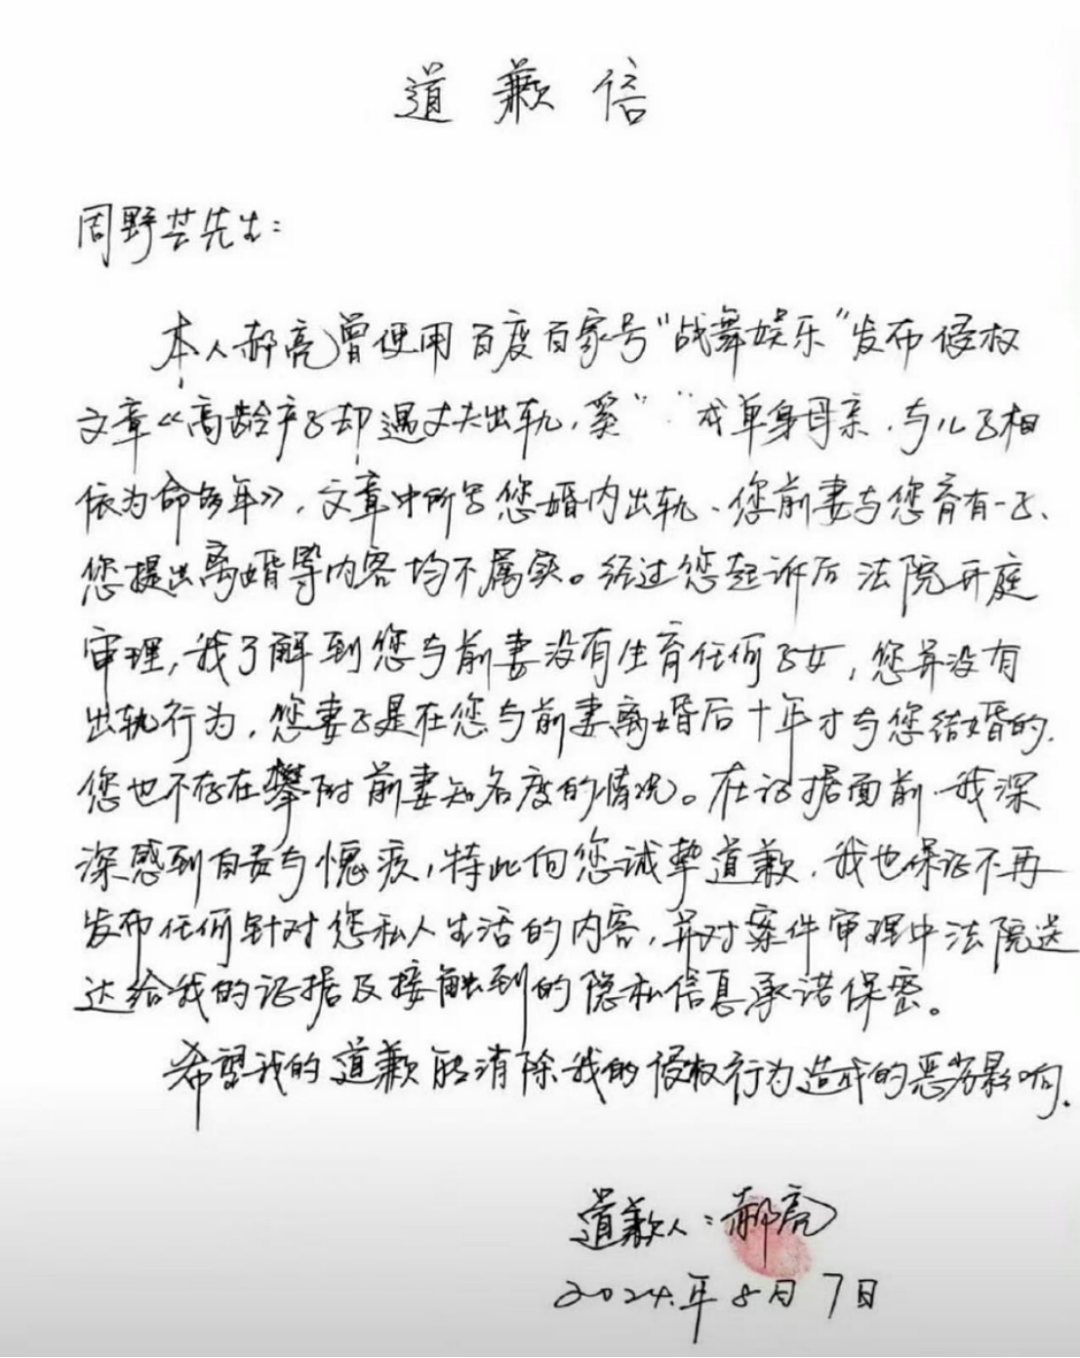 道歉信
周野芒先生：
本人郝亮曾使用百度百家号“战舞娱乐”发布侵权
文章《高龄产子却遇丈夫出轨，奚" "成单身母亲，与儿子相
依为命多年》，文章中所写您婚内出轨、您前妻与您育有一子、
您提出离婚等内容均不属实。经过您起诉后法院开庭
审理，我了解到您与前妻没有生育任何子女，您并没有
出轨行为，您妻子是在您与前妻离婚后十年才与您结婚的，
您也不存在攀附前妻知名度的情况。在证据面前，我深
深感到自责与愧疚，特此向您诚挚道歉，我也保证不再
发布任何针对您私人生活的内容，并对案件审理中法院送
达给我的证据及接触到的隐私信息承诺保密。
希望我的道歉能消除我的侵权行为造成的恶劣影响.
道歉人：郝亮
2024.年8月7日